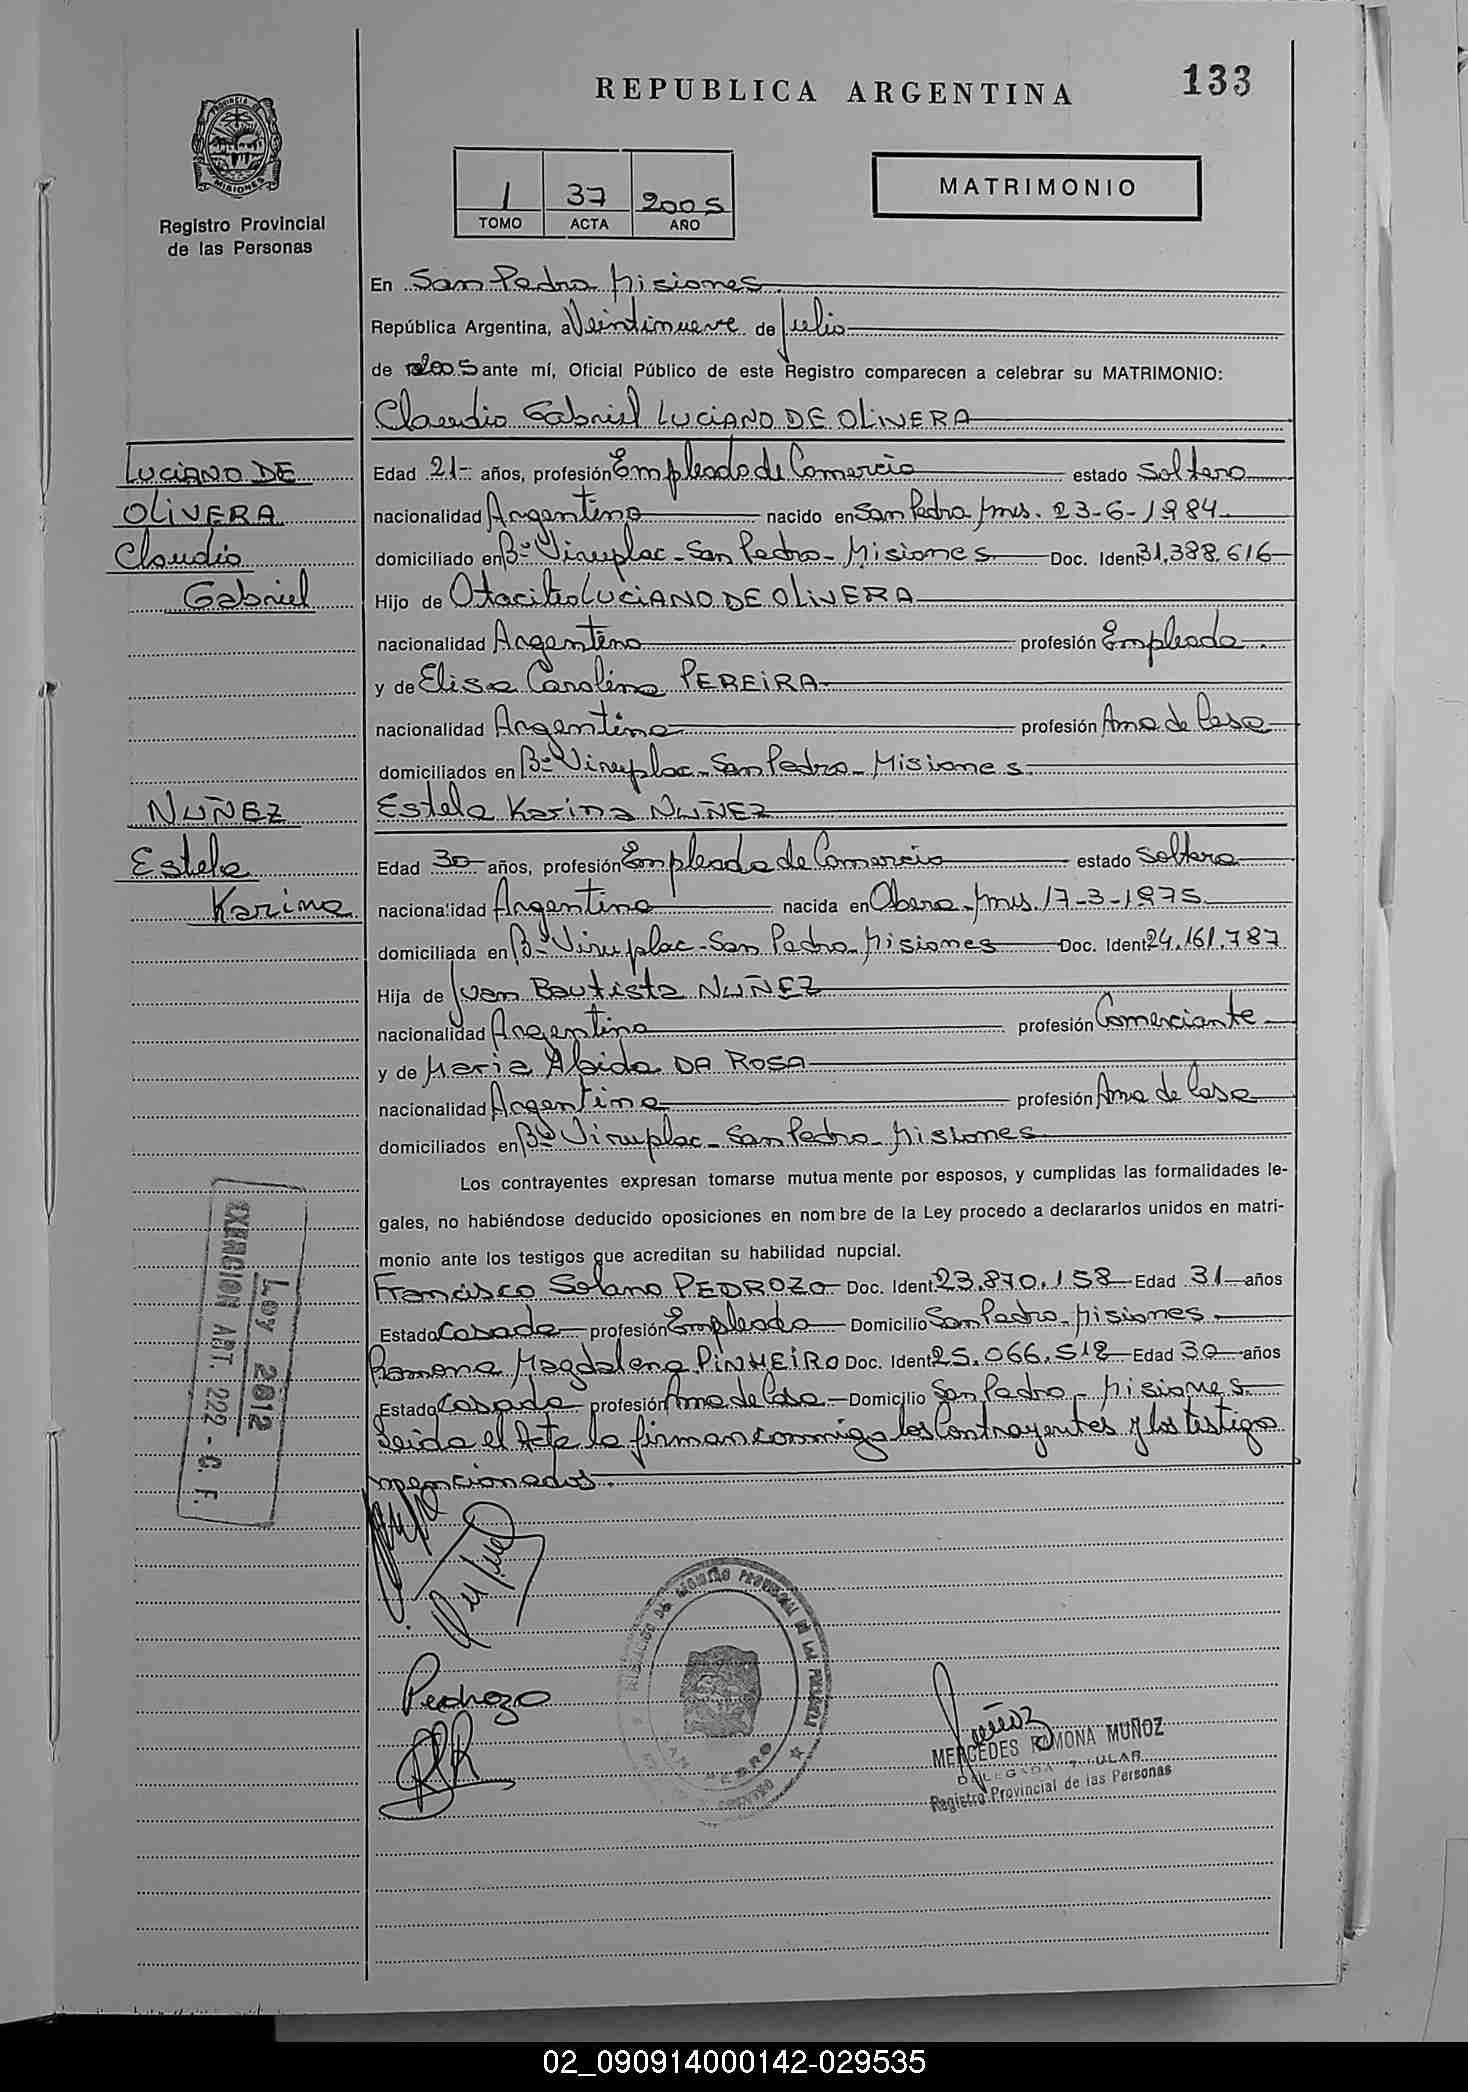 133
REPUBLICA ARGENTINA
PROVINCIA DE MISIONES
Registro Provincial
de las Personas
1 37 2005
TOMO ACTA AÑO
MATRIMONIO
En San Pedro Misiones
República Argentina, a Veintinueve de Julio
de 2005 ante mí, Oficial Público de este Registro comparecen a celebrar su MATRIMONIO:
Claudio Gabriel LUCIANO DE OLIVERA
LUCIANO DE
OLIVERA
Claudio
Gabriel
Edad 21 años, profesión Empleado de Comercio estado Soltero
nacionalidad Argentino nacido en San Pedro Mnes. 23-6-1984
domiciliado en Bº Viruplac - San Pedro - Misiones Doc. Ident 31.388.616
Hijo de Otacilio LUCIANO DE OLIVERA
nacionalidad Argentino profesión Empleado.
y de Elisa Carolina PEREIRA
nacionalidad Argentina profesión Ama de Casa
domiciliados en Bº Viruplac - San Pedro - Misiones.
NUÑEZ
Estela
Karina
Estela Karina NUÑEZ
Edad 30 años, profesión Empleada de Comercio estado Soltera
nacionalidad Argentina nacida en Obera - Mnes. 17-3-1975
domiciliada en Bº Viruplac - San Pedro - Misiones Doc. Ident 24.161.787
Hija de Juan Bautista NUÑEZ
nacionalidad Argentino profesión Comerciante
y de Maria Albida DA ROSA
nacionalidad Argentina profesión Ama de Casa
domiciliados en Bº Viruplac - San Pedro - Misiones
Los contrayentes expresan tomarse mutuamente por esposos, y cumplidas las formalidades le-
gales, no habiéndose deducido oposiciones en nombre de la Ley procedo a declararlos unidos en matri-
monio ante los testigos que acreditan su habilidad nupcial.
Francisco Solano PEDROZO Doc. Ident. 23.870.158 Edad 31 años
Estado Casado profesión Empleado Domicilio San Pedro - Misiones
Ramona Magdalena PINHEIRO Doc. Ident 25.066.512 Edad 30 años
Estado Casada profesión Ama de Casa Domicilio San Pedro - Misiones
Leida el Acta la firman conmigo los Contrayentes y los testigo
mencionados.
Ley 2812
EXENCION ART. 222 - C. F.
Pedrozo
REGISTRO PROVINCIAL DE LAS PERSONAS
SAN PEDRO
Muñoz
MERCEDES RAMONA MUÑOZ
DELEGADA TITULAR
Registro Provincial de las Personas
02_090914000142-029535